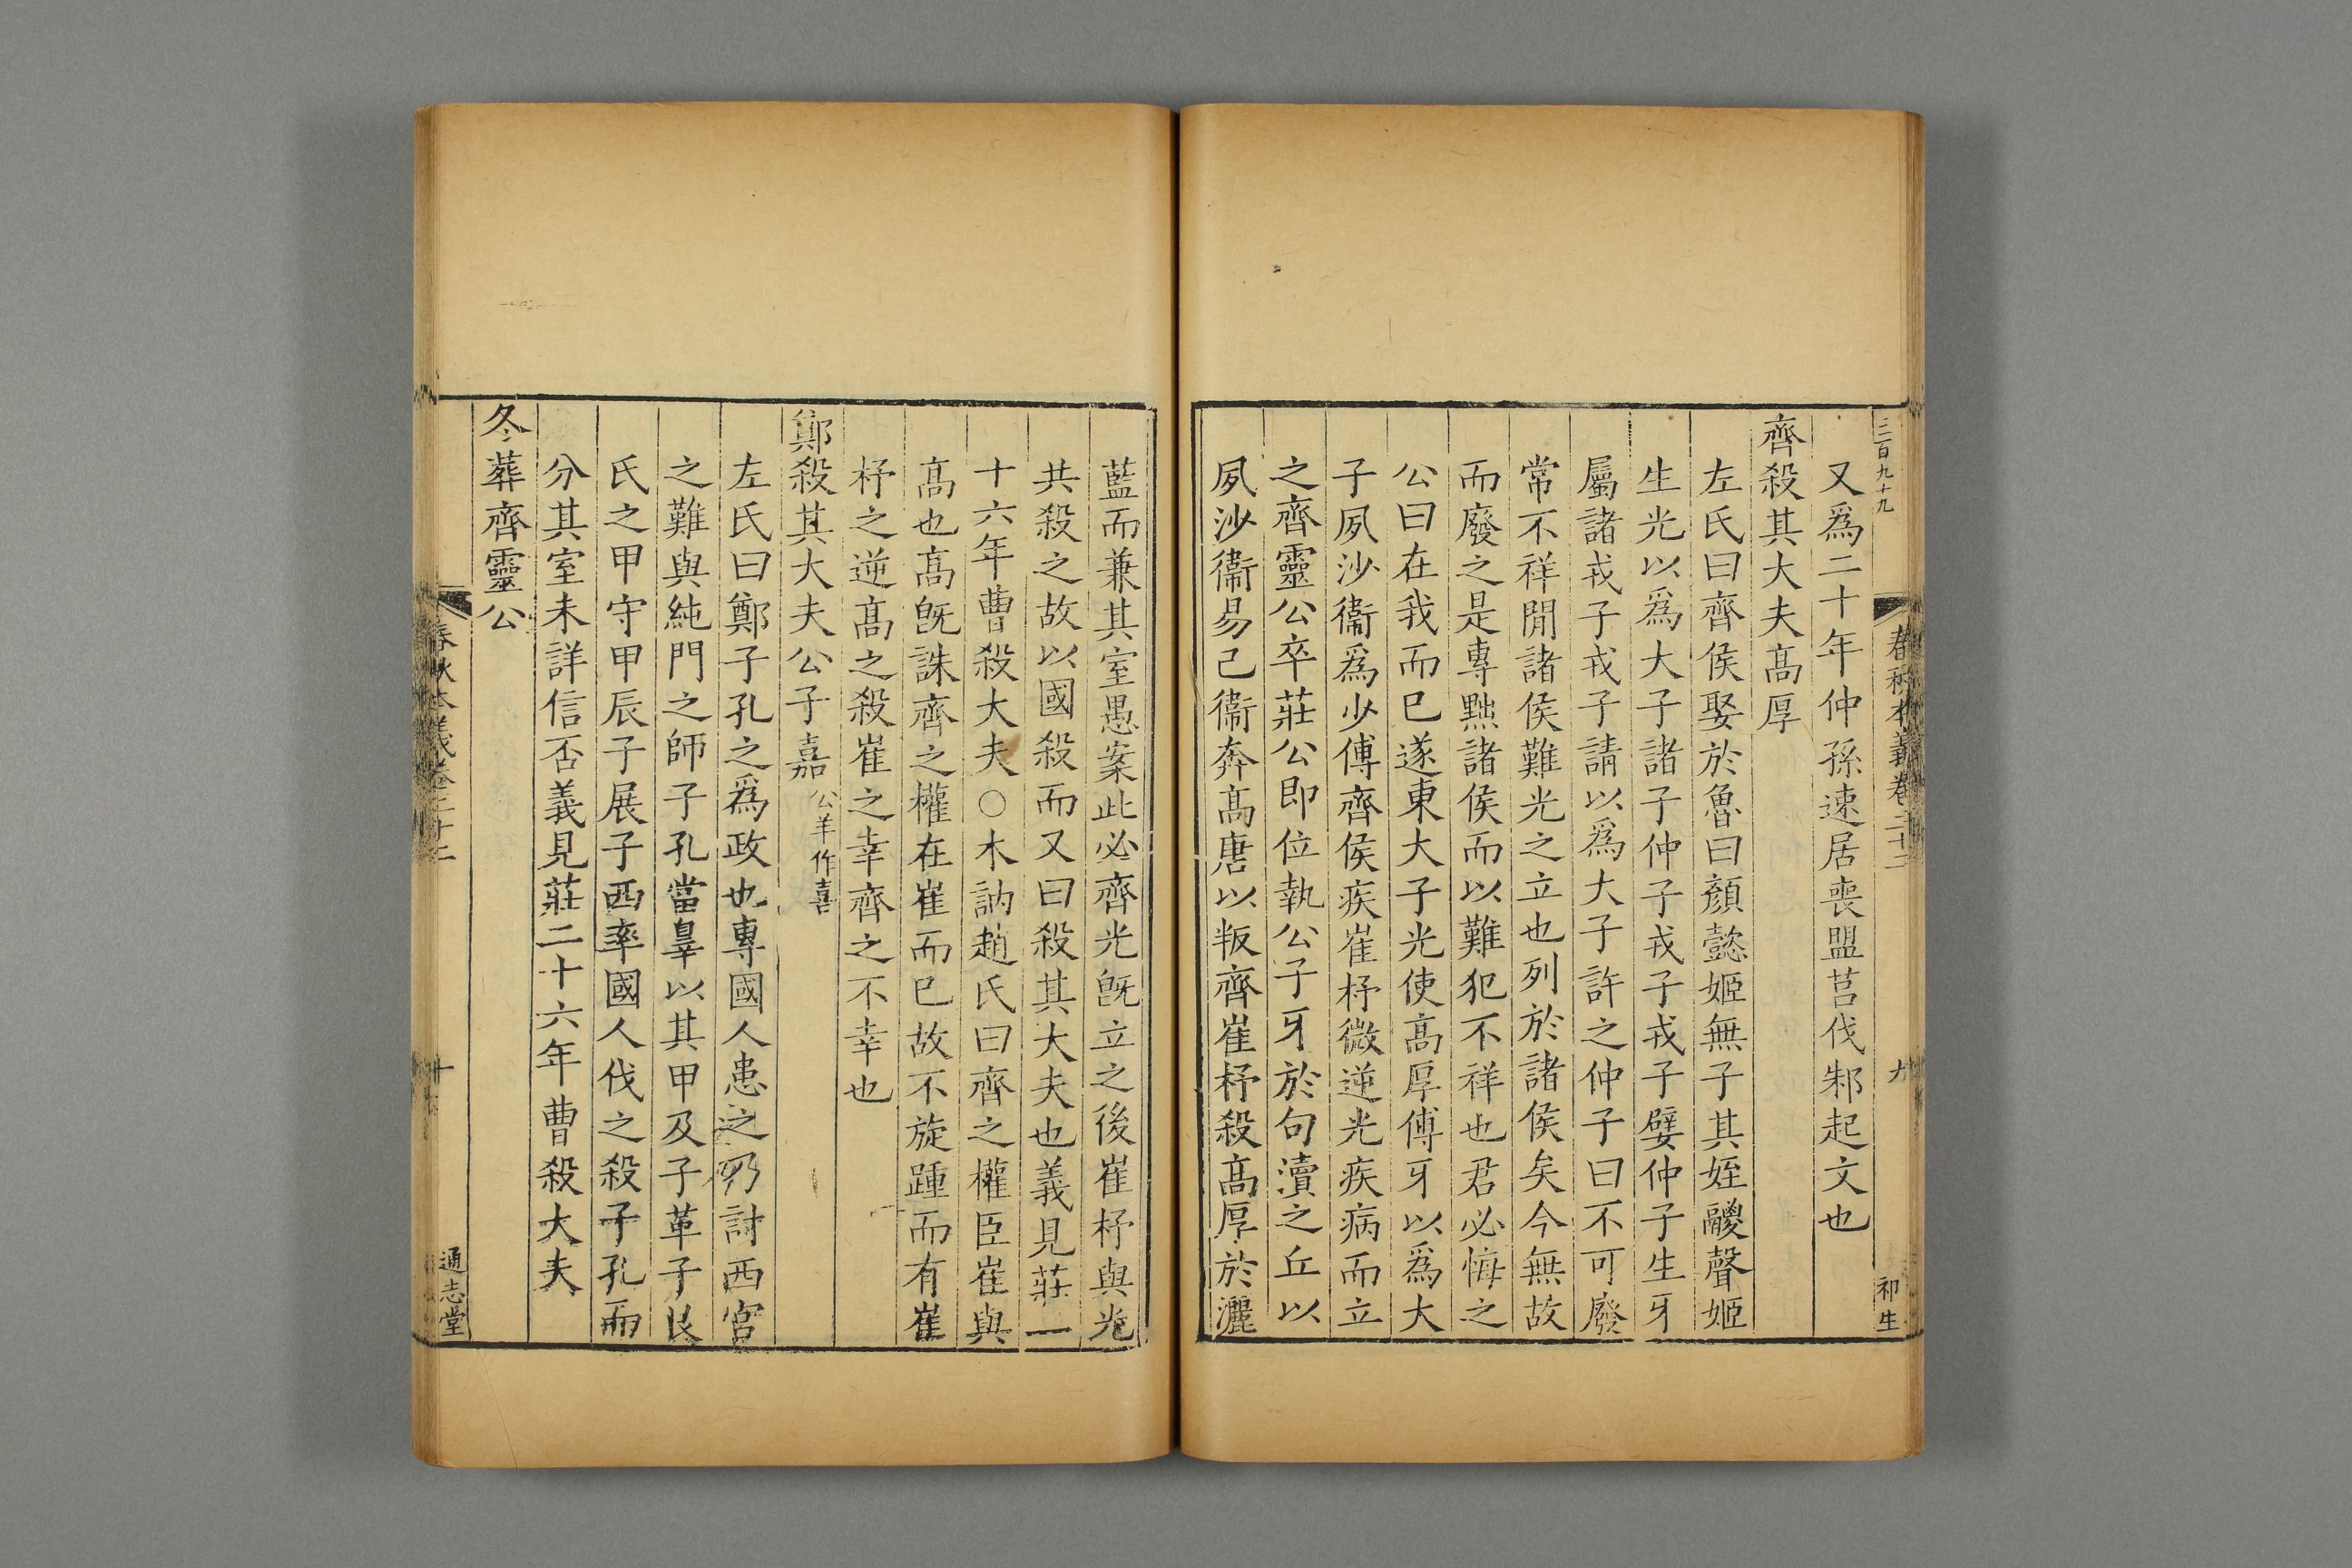 三百九十九
春秋本義卷二十二
九
祁生
又爲二十年仲孫速居喪盟莒伐邾起文也
齊殺其大夫髙厚
左氏曰齊侯娶於魯曰顏懿姬無子其姪鬷聲姬
生光以爲大子諸子仲子戎子戎子嬖仲子生牙
屬諸戎子戎子請以爲大子許之仲子曰不可廢
常不祥閒諸侯難光之立也列於諸侯矣今無故
而廢之是專黜諸侯而以難犯不祥也君必悔之
公曰在我而已遂東大子光使髙厚傅牙以爲大
子夙沙衞爲少傅齊侯疾崔杼微逆光疾病而立
之齊靈公卒莊公即位執公子牙於句瀆之丘以
夙沙衞易己衞奔髙唐以叛齊崔杼殺髙厚於灑
藍而兼其室愚案此必齊光旣立之後崔杼與光
共殺之故以國殺而又曰殺其大夫也義見莊一
十六年曹殺大夫○木訥趙氏曰齊之權臣崔與
髙也髙旣誅齊之權在崔而已故不旋踵而有崔
杼之逆髙之殺崔之幸齊之不幸也
鄭殺其大夫公子嘉公羊作喜
左氏曰鄭子孔之爲政也專國人患之乃討西宮
之難與純門之師子孔當辠以其甲及子革子良
氏之甲守甲辰子展子西率國人伐之殺子孔而
分其室未詳信否義見莊二十六年曹殺大夫
冬葬齊靈公
春秋本義卷二十二
十
通志堂